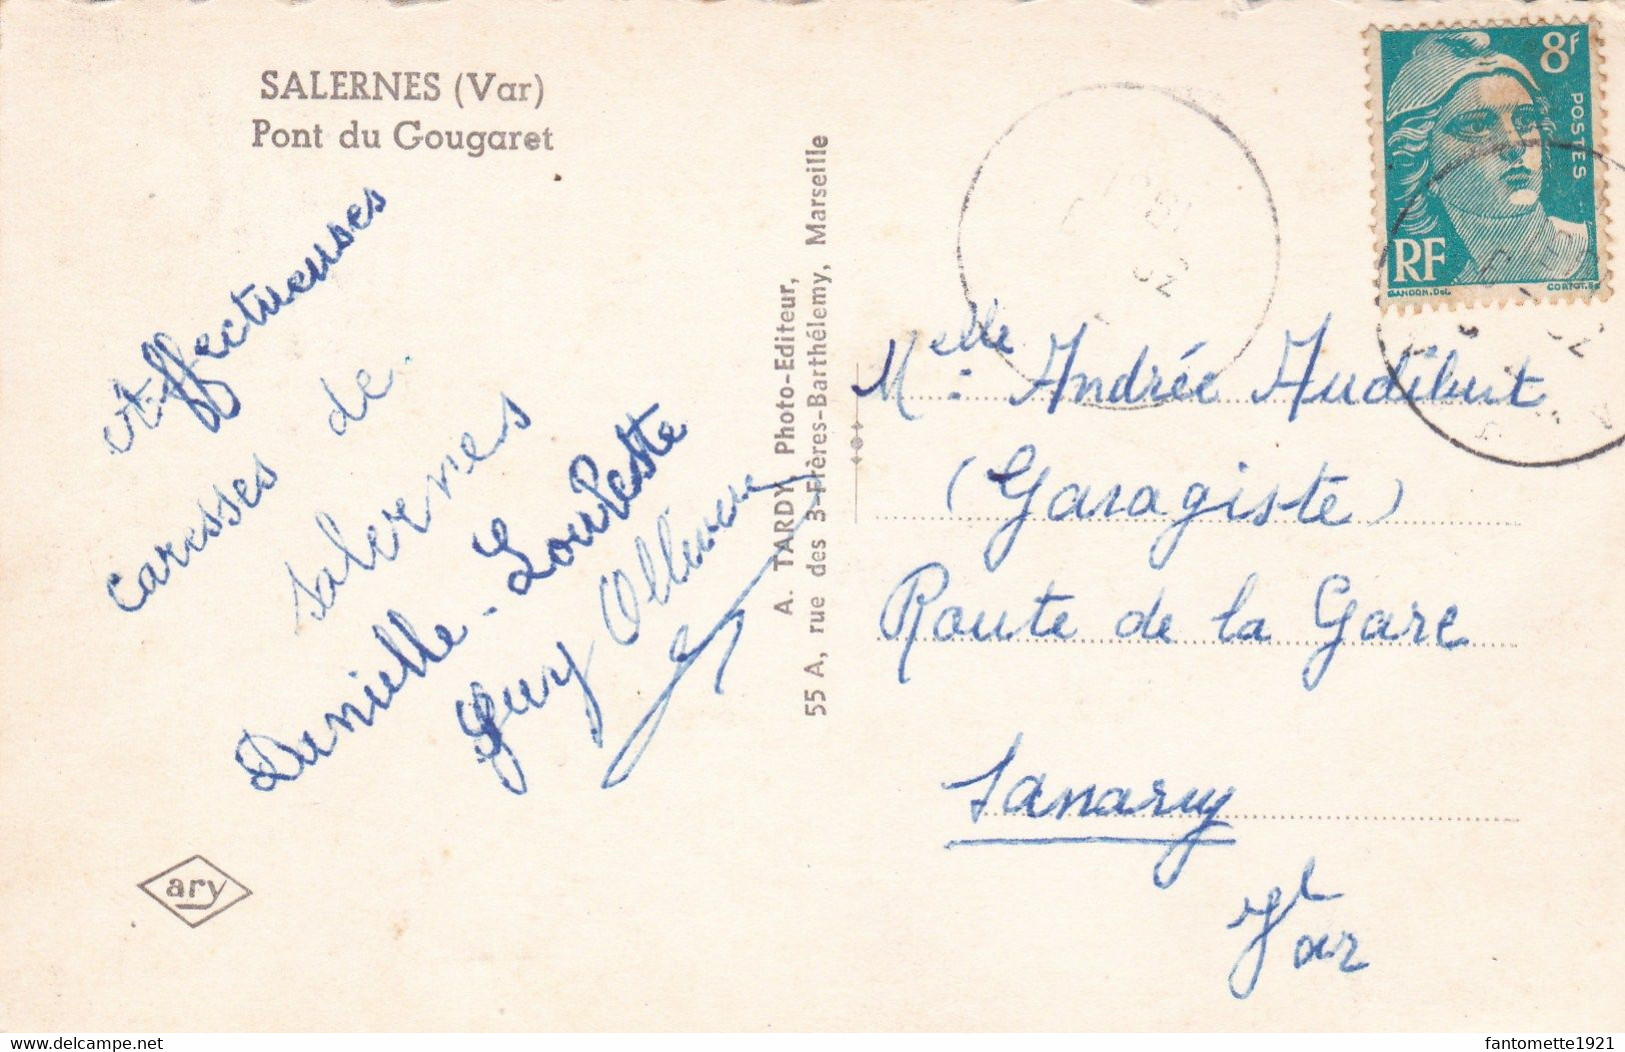 SALERNES (Var)
Pont du Gougaret
Affectueuses
caresses de
Salernes
Danielle - Loulette
Guy Ollivier
ary
A. TARDY Photo-Editeur,
55 A, rue des 3-Frères-Barthélemy, Marseille
8F
POSTES
RF
GANDON.DEL
CORTOT.SC
52
52
Melle : Andrée Audibert
(Garagiste)
Route de la Gare
Sanary
Var
delcampe.net
fantomette1921